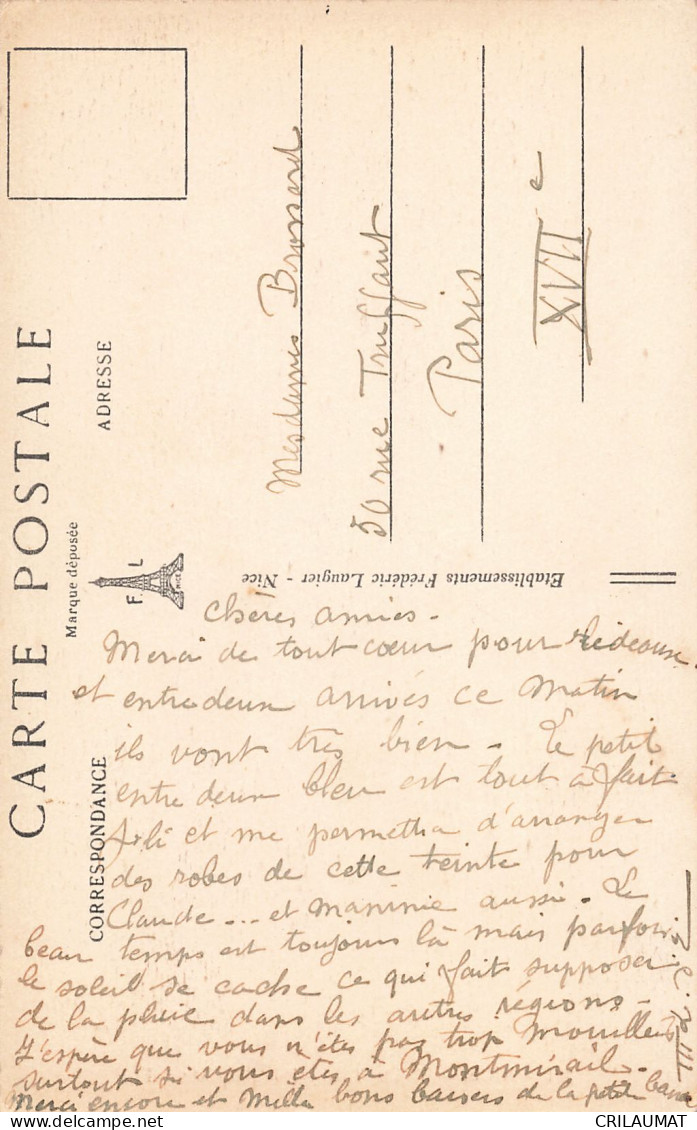 CARTE POSTALE
Marque déposée
F. L
NICE
ADRESSE
CORRESPONDANCE
Etablissements Frédéric Laugier - Nice
Mesdames Brossard
50 rue Truffaut
Paris
XVII e
Chères amies -
Merci de tout cœur pour rideaux
et entredeux arrivés ce matin
ils vont très bien - Le petit
entre deux bleu est tout à fait
joli et me permettra d'arranger
des robes de cette teinte pour
Claude ... et maninie aussi. Le
beau temps est toujours là mais parfois
le soleil se cache ce qui fait supposer
de la pluie dans les autres régions -
J'espère que vous n'êtes pas trop mouillées
surtout si vous êtes à Montmirail -
Merci encore et mille bons baisers de la petite
CRILAUMAT